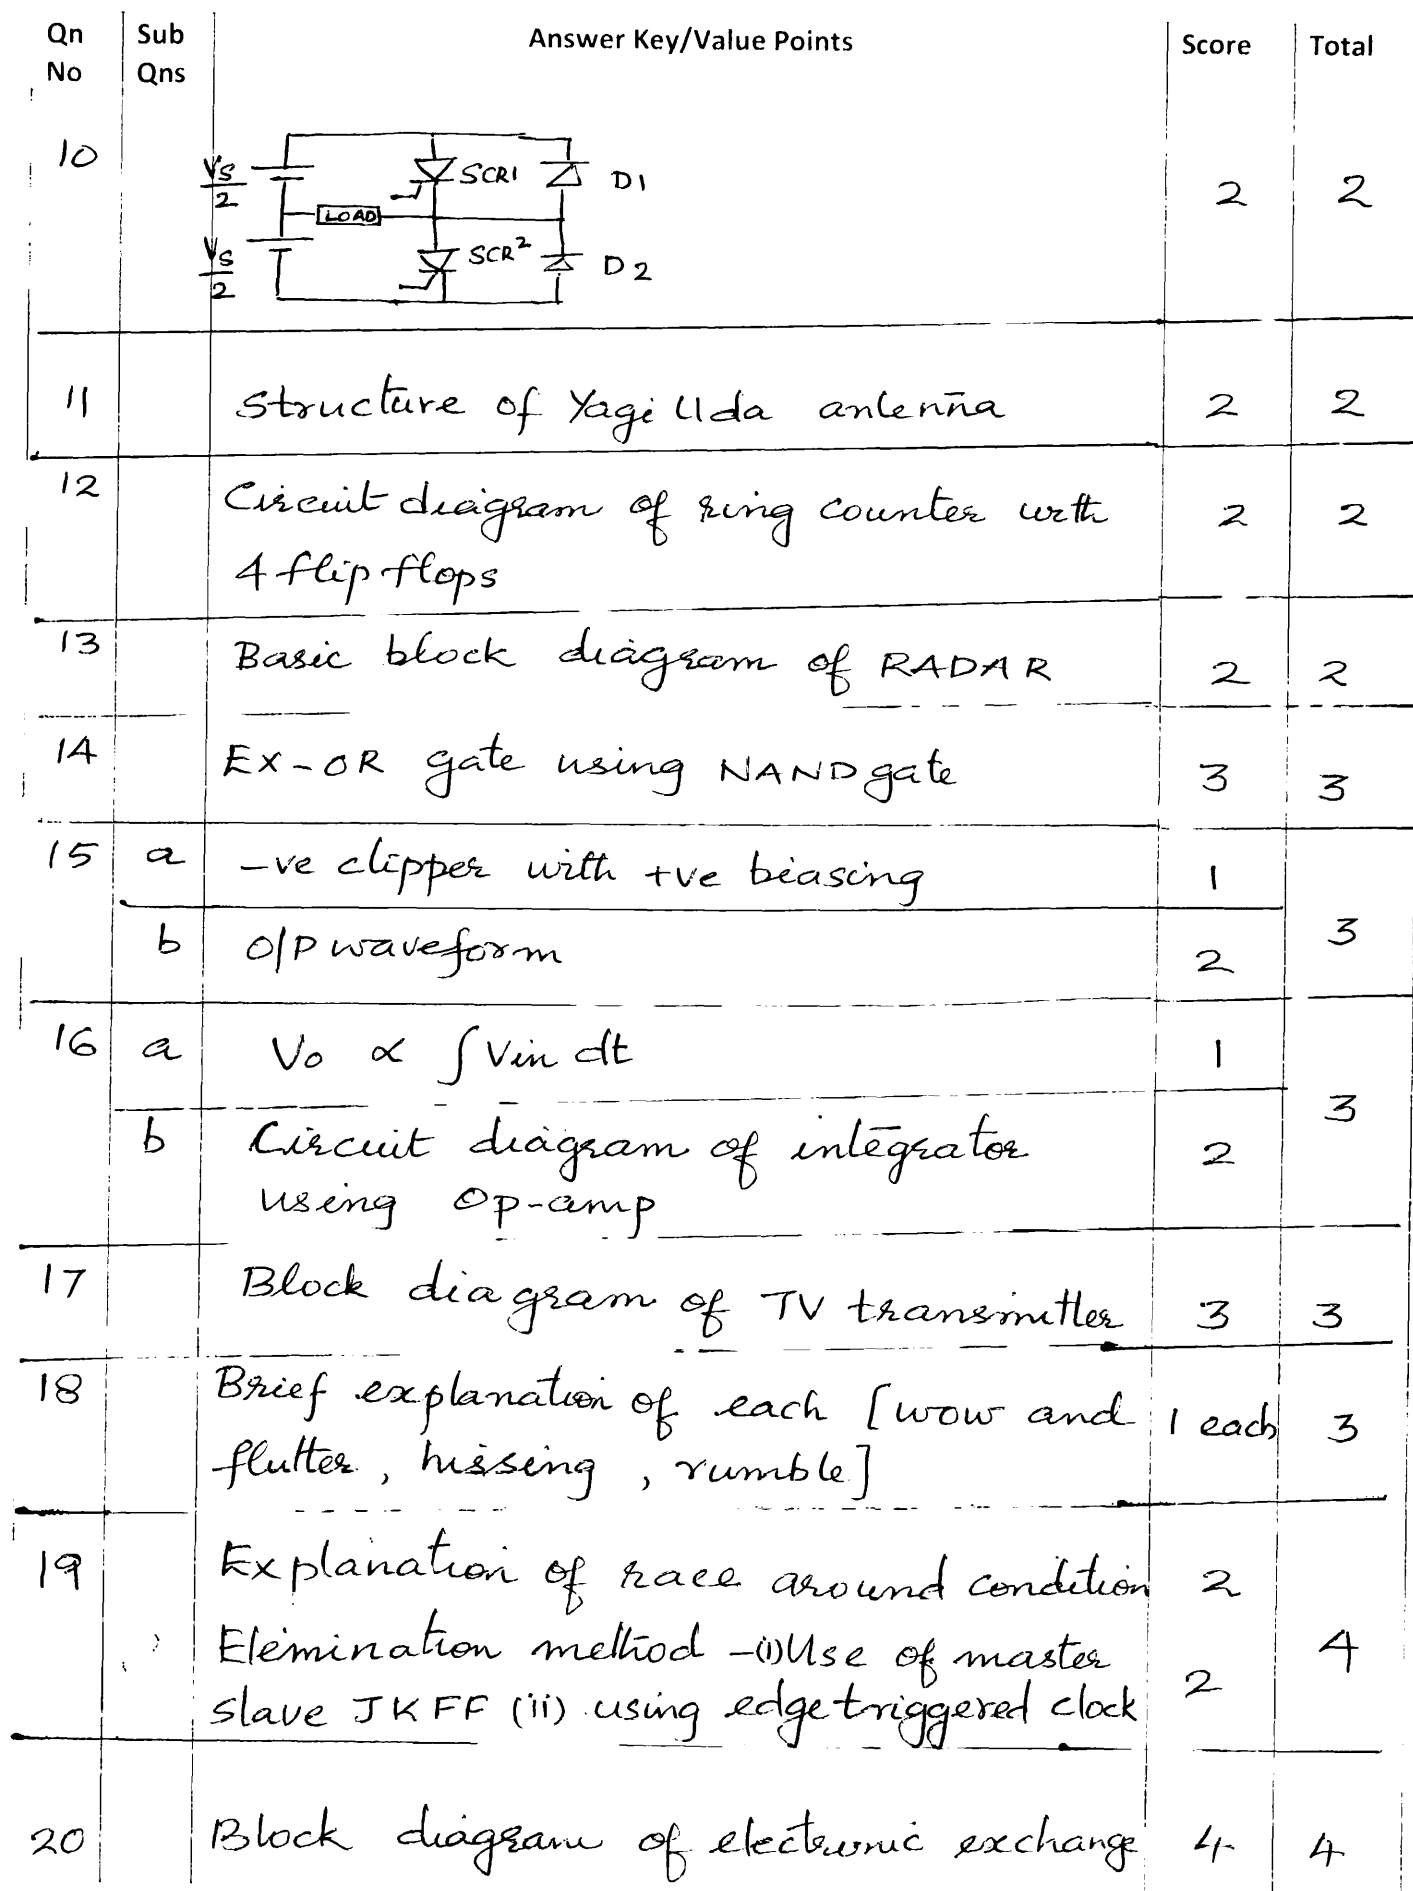 Qn No Sub Qns Answer Key/Value Points Score Total
10 Vs/2 SCR1 D1 2 2
LOAD
Vs/2 SCR2 D2
11 Structure of Yagi Uda antenna 2 2
12 Circuit diagram of ring counter with 2 2
4 flip flops
13 Basic block diagram of RADAR 2 2
14 EX-OR gate using NAND gate 3 3
15 a -ve clipper with +ve biasing 1
b O/P waveform 2 3
16 a Vo ∝ ∫ Vin dt 1
3
b Circuit diagram of integrator 2
using Op-amp
17 Block diagram of TV transmitter 3 3
18 Brief explanation of each [wow and 1 each 3
flutter, hissing, rumble]
19 Explanation of race around condition 2
Elimination method -(i) Use of master 4
slave JK FF (ii) using edge triggered clock 2
20 Block diagram of electronic exchange 4 4